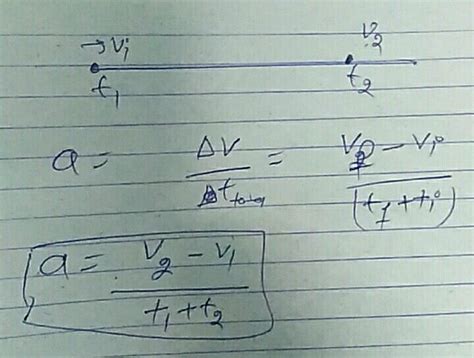 → Vi V2
t1 t2
a = ΔV / Δt total = V2 - Vi / (tf + ti)
a = V2 - V1 / t1 + t2